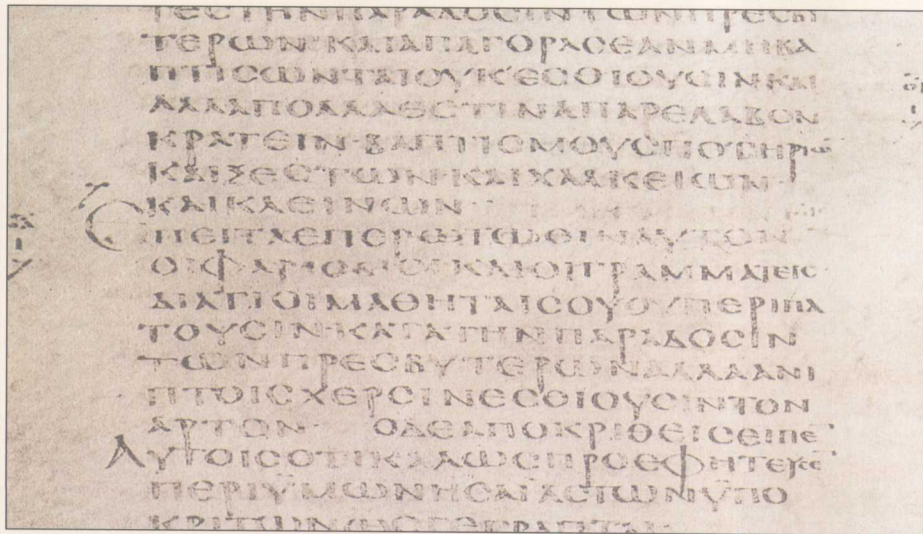 ΤΕϹΤΗΝΠΑΡΑΔΟϹΙΝΤΩΝΠΡΕϹΒΥ
ΤΕΡΩΝ·ΚΑΙΑΠΑΓΟΡΑϹΕΑΝΜΗΒΑ
ΠΤΙϹΩΝΤΑΙΟΥΚΕϹΘΙΟΥϹΙΝΚΑΙ
ΑΛΛΑΠΟΛΛΑΕϹΤΙΝΑΠΑΡΕΛΑΒΟΝ
ΚΡΑΤΕΙΝ·ΒΑΠΤΙϹΜΟΥϹΠΟΤΗΡΙΩ
ΚΑΙΞΕϹΤΩΝ·ΚΑΙΧΑΛΚΕΙΩΝ·
ΚΑΙΚΛΕΙΝΩΝ·
ΕΠΕΙΤΑΕΠΕΡΩΤΩϹΙΝΑΥΤΟΝ
ΟΙΦΑΡΙϹΑΙΟΙΚΑΙΟΙΓΡΑΜΜΑΤΕΙϹ
ΔΙΑΤΙΟΙΜΑΘΗΤΑΙϹΟΥΟΥΠΕΡΙΠΑ
ΤΟΥϹΙΝ·ΚΑΤΑΤΗΝΠΑΡΑΔΟϹΙΝ
ΤΩΝΠΡΕϹΒΥΤΕΡΩΝΑΛΛΑΑΝΙ
ΠΤΟΙϹΧΕΡϹΙΝΕϹΘΙΟΥϹΙΝΤΟΝ
ΑΡΤΟΝ· ΟΔΕΑΠΟΚΡΙΘΕΙϹΕΙΠΕ̅
ΑΥΤΟΙϹΟΤΙΚΑΛΩϹΠΡΟΕΦΗΤΕΥϹΕ̅
ΠΕΡΙΥΜΩΝΗϹΑΙΑϹΤΩΝΥΠΟ
ΚΡΙΤΩΝΩϹΓΕΓΡΑΠΤΑΙ·